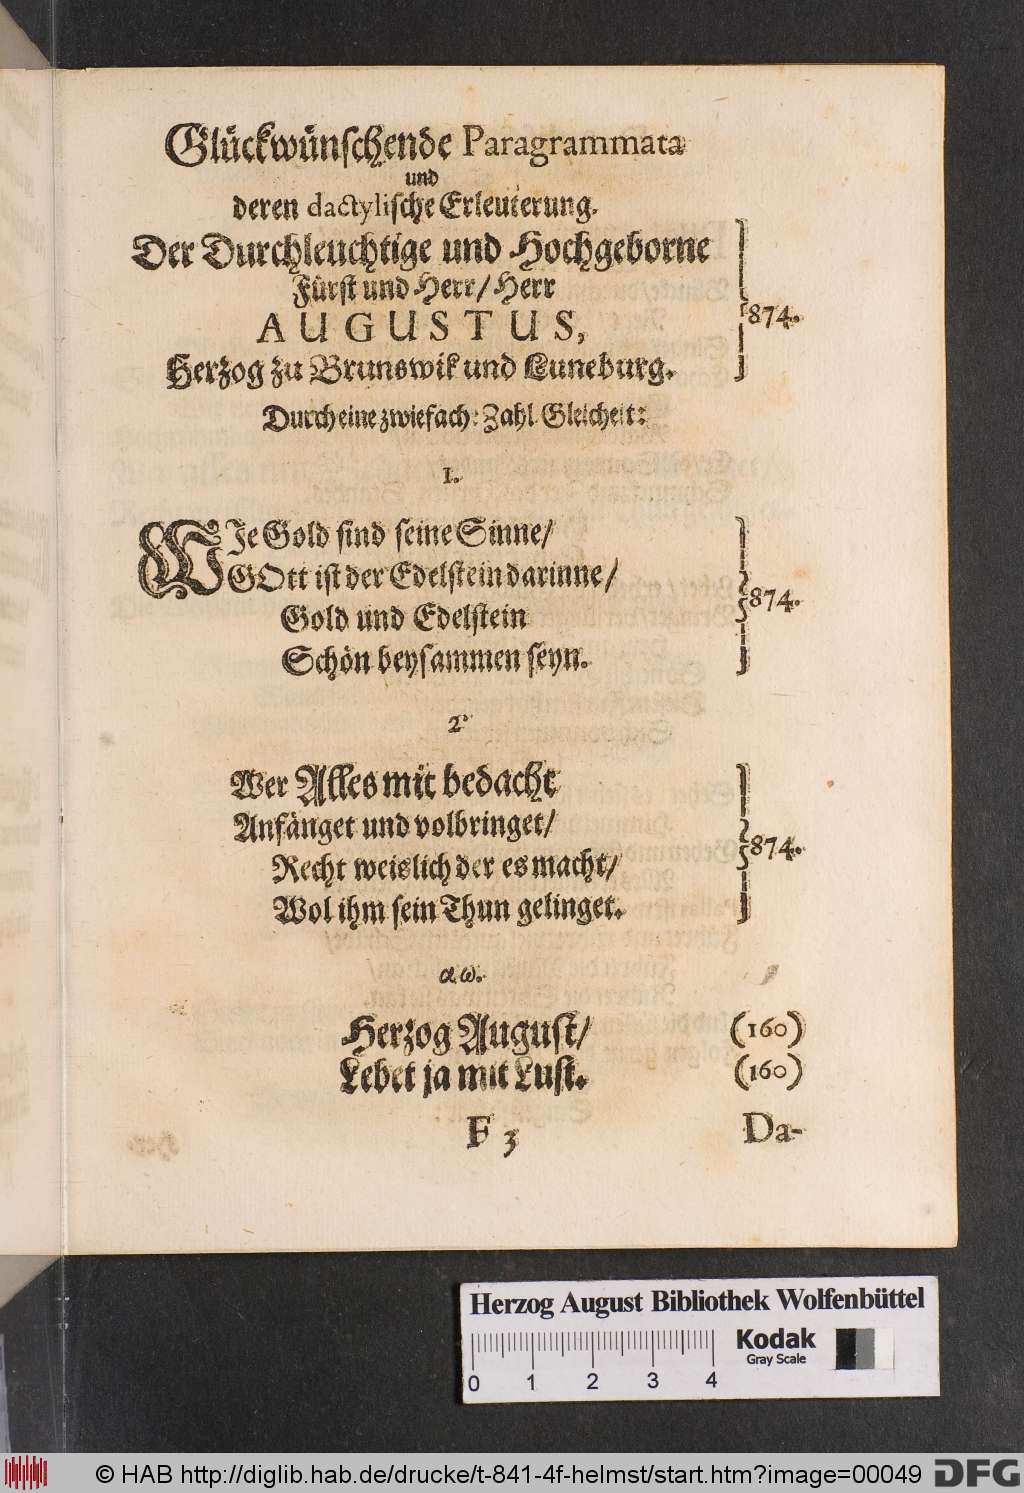 Glückwünschende Paragrammata
und
deren dactylische Erleuterung.
Der Durchleuchtige und Hochgeborne
Fürst und Herr/ Herr
AUGUSTUS,
Herzog zu Brunswik und Luneburg.
874.
Durch eine zwiefach: Zahl Gleicheit:
1.
WJe Gold sind seine Sinne/
GOtt ist der Edelstein darinne/
Gold und Edelstein
Schön beysammen seyn.
874.
2.
Wer Alles mit bedacht
Anfänget und volbringet/
Recht weislich der es macht/
Wol ihm sein Thun gelinget.
874.
α ω.
Herzog August/ (160)
Lebet ja mit Lust. (160)
F 3 Da-
Herzog August Bibliothek Wolfenbüttel
0 1 2 3 4
Kodak
Gray Scale
© HAB http://diglib.hab.de/drucke/t-841-4f-helmst/start.htm?image=00049
DFG